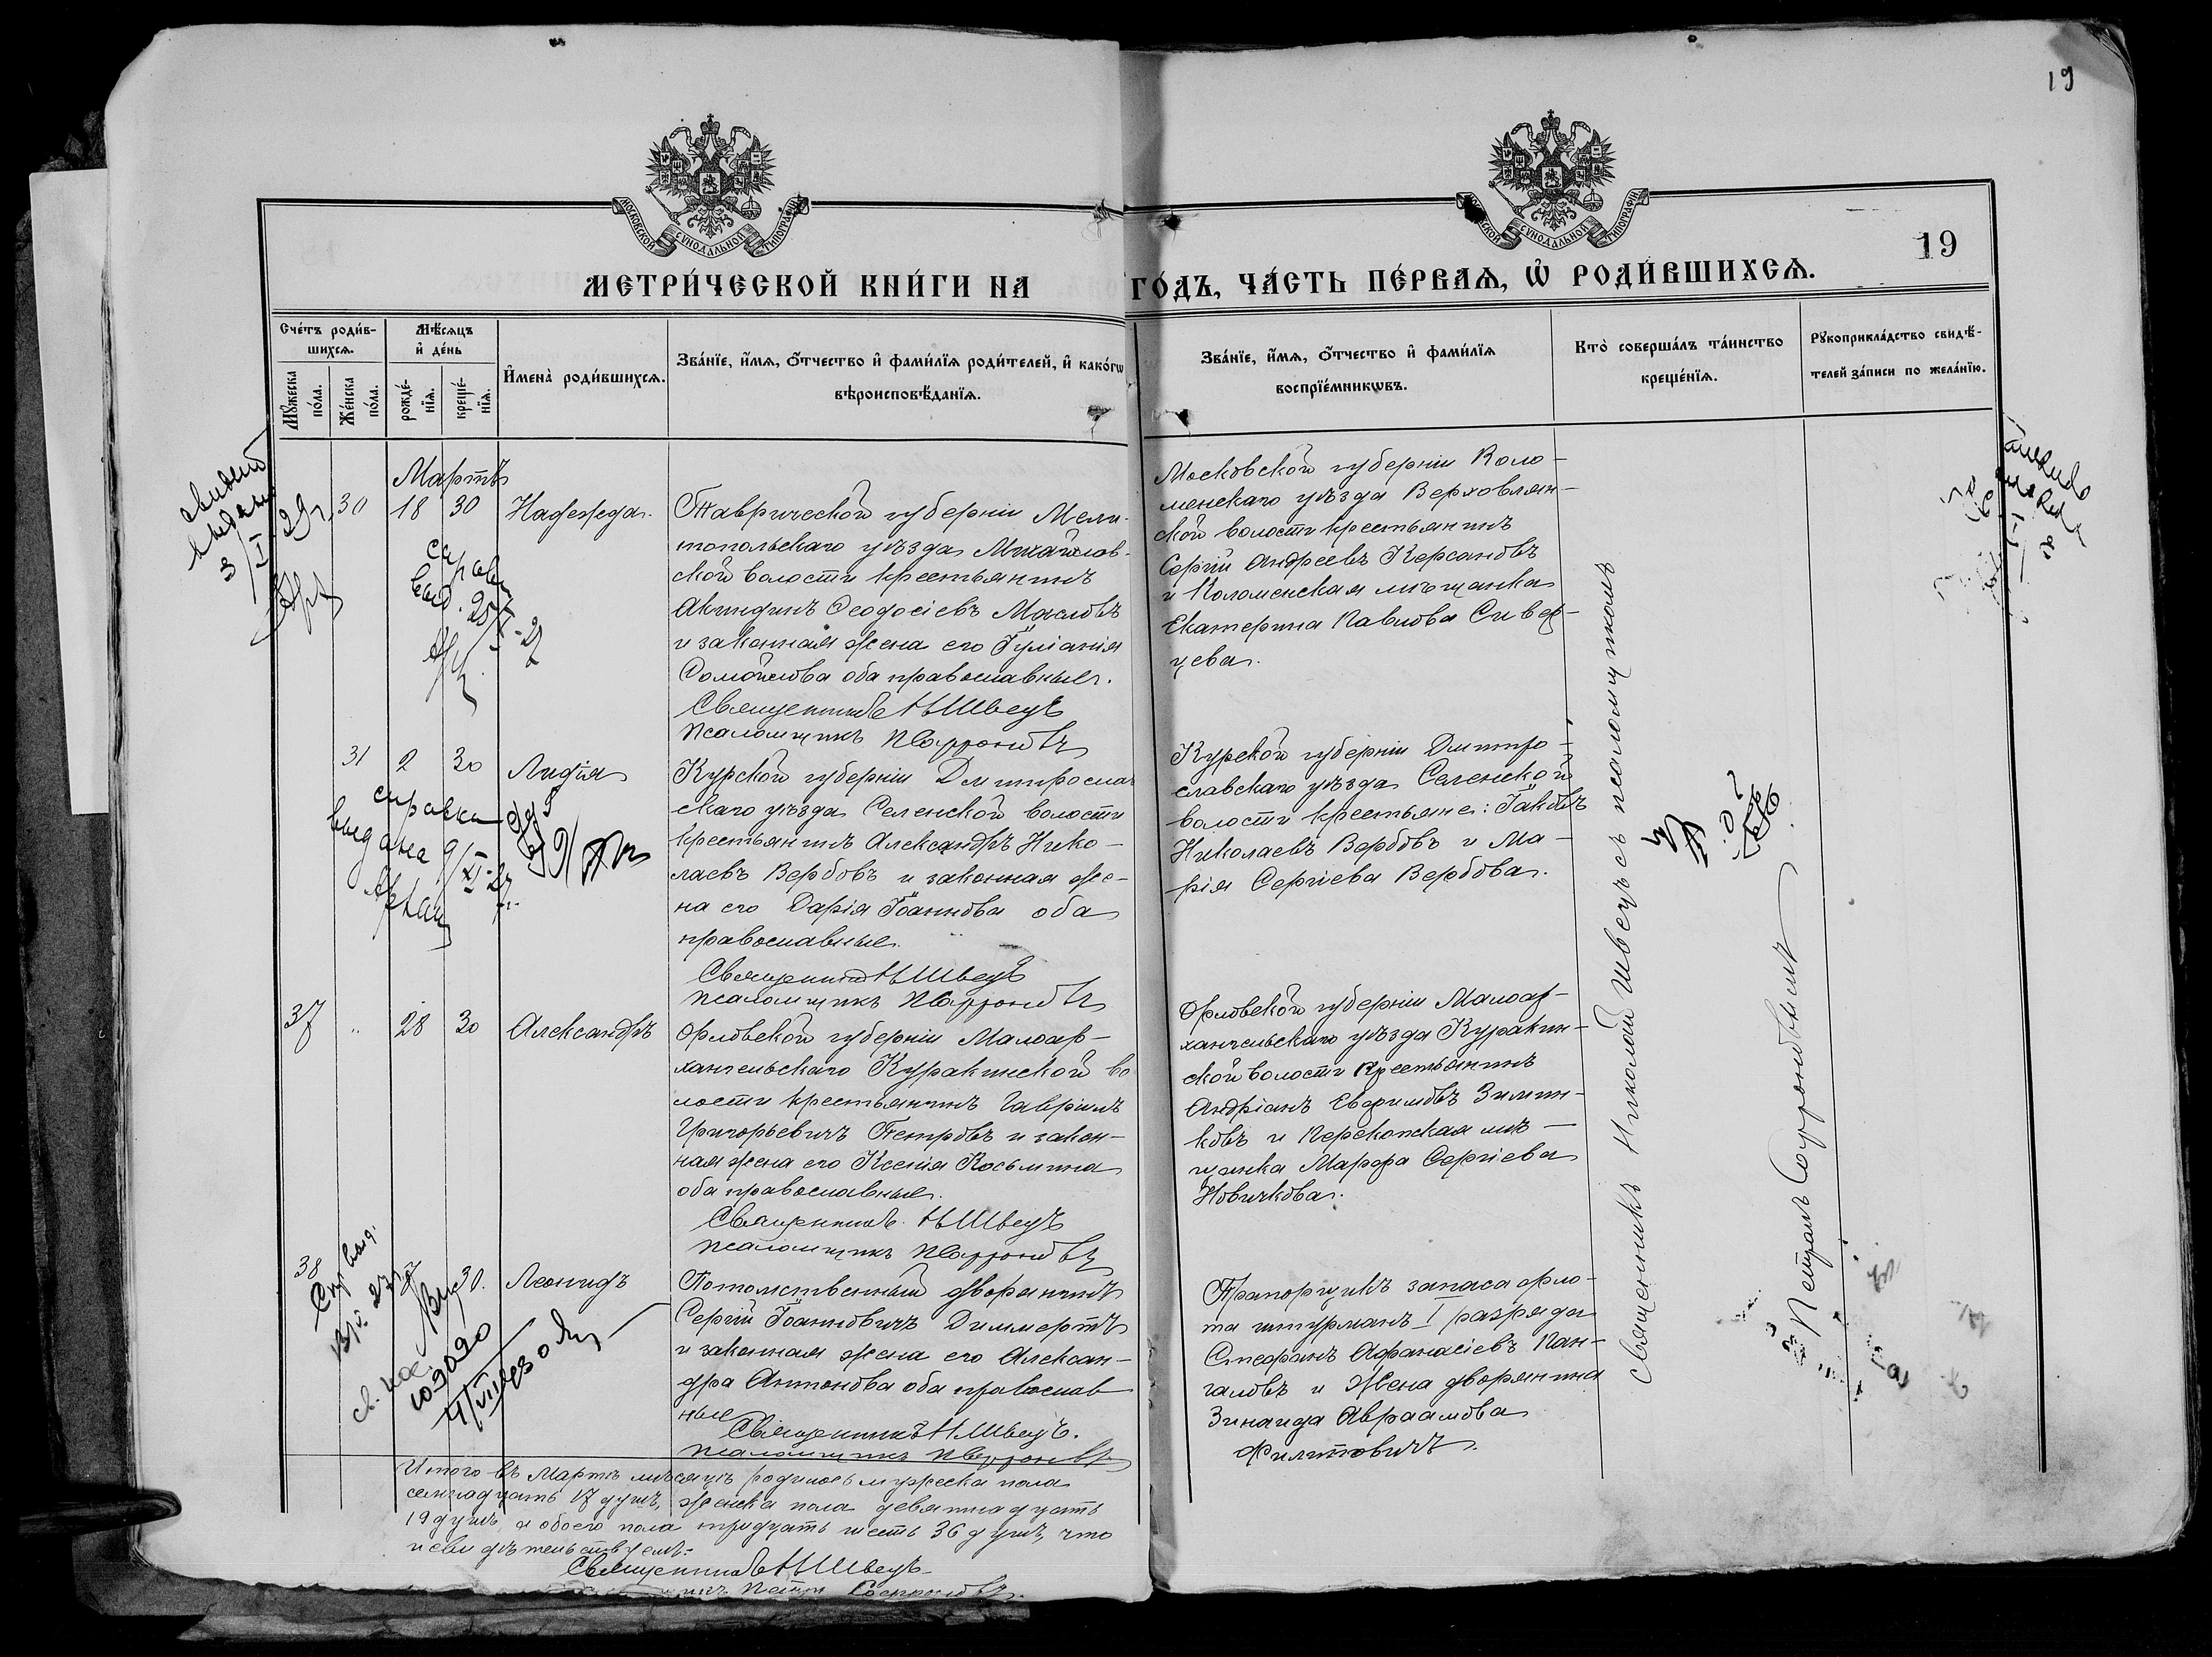 19
МОСКОВСКОЙ СУНОДАЛЬНОЙ ТИПОГРАФІИ
МОСКОВСКОЙ СУНОДАЛЬНОЙ ТИПОГРАФІИ
19
МЕТРИ́ЧЕСКОЙ КНИ́ГИ НА ГО́ДЪ, ЧА́СТЬ ПЕ́РВАѦ, Ѡ҆ РОДИ́ВШИХСѦ.
Счетъ роди́в-
шихсѧ.
Мѣ́сѧцъ
и҆ де́нь
Мꙋжеска
по́ла.
Же́нска
по́ла.
рожде́-
нїѧ.
креще́-
нїѧ.
И҆мена̀ роди́вшихсѧ.
Зва́нїе, и҆́мѧ, ѻ҆́тчество и҆ фами́лїѧ роди́телей, и҆ како́гѡ
вѣроисповѣ́данїѧ.
Зва́нїе, и҆́мѧ, ѻ҆́тчество и҆ фами́лїѧ
воспрїе́мникѡвъ.
Кто̀ соверша́лъ та́инство
креще́нїѧ.
Рꙋкоприкла́дство свидѣ́-
телей за́писи по жела́нїю.
Мартъ
30 18 30 Надежда.
Таврической губерніи Мели-
топольскаго уѣзда Михайлов-
ской волости крестьянинъ
Акиндинъ Ѳеодосіевъ Масловъ
и законная жена его Іуліанія
Самойлова оба православные.
Священникъ Н Швецъ
Псаломщикъ П Софроновъ
Московской губерніи Коло-
менскаго уѣзда Верховлян-
ской волости крестьянинъ
Сергій Андреевъ Кирсановъ
и Коломенская мѣщанка
Екатерина Павлова Сивер-
цева.
31 2 30 Лидія
Курской губерніи Дмитросла
скаго уѣзда Селенской волости
крестьянинъ Александръ Нико-
лаевъ Вербовъ и законная же-
на его Дарія Іоаннова оба
православные.
Священникъ Н Швецъ
Псаломщикъ П Софроновъ
Курской губерніи Дмитро-
славскаго уѣзда Селенской
волости крестьяне: Іаковъ
Николаевъ Вербовъ и Ма-
рія Сергіева Вербова.
справка
выдана
37 " 28 30 Александръ
Орловской губерніи Малоар-
хангельскаго Куракинской во
лости крестьянинъ Гавріилъ
Григорьевичъ Петровъ и закон-
ная жена его Ксенія Косьмина
оба православные.
Священникъ Н Швецъ
Псаломщикъ П Софроновъ
Орловской губерніи Малоар-
хангельскаго уѣзда Куракин-
ской волости Крестьянинъ
Андріанъ Евфимовъ Зимин-
ковъ и Перекопская мѣ-
щанка Марфа Сергіева
Новичкова.
38 30. Леонидъ
Потомственный дворянинъ
Сергій Іоанновичъ Диммертъ
и законная жена его Алексан-
дра Антонова оба православ
ные
Священникъ Н Швецъ.
Псаломщикъ П Софроновъ
Прапорщикъ запаса фло-
та штурманъ I разряда
Стефанъ Афанасіевъ Пан-
галовъ и Жена дворянина
Зинаида Авраамова
Филтовичъ.
103090
Священникъ Николай Швецъ съ псаломщикомъ
Петромъ Софроновымъ
Итого въ Мартѣ мѣсяцѣ родилось мужеска пола
семнадцать 17 душъ, женска пола девятнадцать
19 душъ, а обоего пола тридцать шесть 36 душъ, что
и свидѣтельствуемъ:
Священникъ Н Швецъ
Петръ Софроновъ.